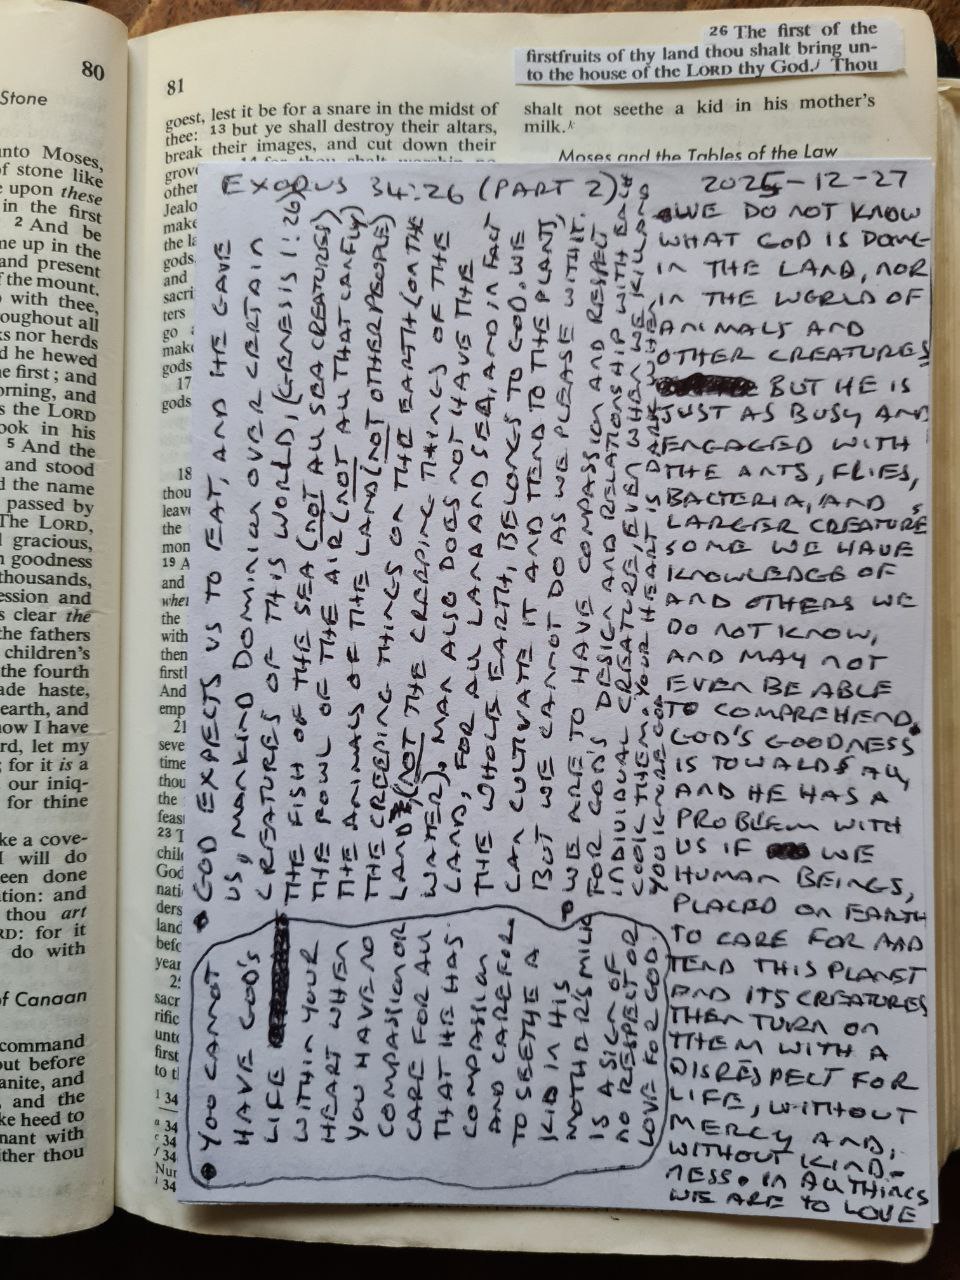 80
Stone
unto Moses,
of stone like
upon these
in the first
2 And be
me up in the
and present
f the mount.
with thee,
oughout all
ks nor herds
d he hewed
e first; and
orning, and
s the LORD
ook in his
5 And the
and stood
d the name
passed by
The LORD,
gracious,
n goodness
thousands,
ession and
s clear the
the fathers
children's
the fourth
ade haste,
earth, and
now I have
rd, let my
; for it is a
our iniq-
for thine
ke a cove-
I will do
een done
ation: and
thou art
RD: for it
do with
of Canaan
command
out before
anite, and
, and the
ke heed to
nant with
ither thou
81
goest, lest it be for a snare in the midst of
thee: 13 but ye shall destroy their altars,
break their images, and cut down their
grov
other
Jealo
make
the la
gods,
and
sacri
ters
go a
make
gods
17
gods
18
thou
leave
the
mon
19 A
and
whe
the
with
then
firstl
And
emp
21
seve
time
thou
the
feas
23 T
chil
God
nati
ders
land
befo
year
25
sacr
rific
unto
first
to tl
1 34
34
34
34
Nur
34
26 The first of the
firstfruits of thy land thou shalt bring un-
to the house of the LORD thy God. Thou
shalt not seethe a kid in his mother's
milk.k
Moses and the Tables of the Law
EXODUS 34:26 (PART 2) 2025-12-27
GOD EXPECTS US TO EAT, AND HE GAVE
US, MANKIND DOMINION OVER CERTAIN
CREATURES OF THIS WORLD, (GENESIS 1:26)
THE FISH OF THE SEA (NOT ALL SEA CREATURES)
THE FOWL OF THE AIR (NOT ALL THAT CAN FLY)
THE ANIMALS OF THE LAND (NOT OTHER PEOPLE)
THE CREEPING THINGS ON THE EARTH (ON THE
LAND), (NOT THE CREEPING THINGS OF THE
WATER). MAN ALSO DOES NOT HAVE THE
LAND, FOR ALL LAND AND SEA, AND IN FACT
THE WHOLE EARTH, BELONGS TO GOD. WE
CAN CULTIVATE IT AND TEND TO THE PLANT,
BUT WE CANNOT DO AS WE PLEASE WITH IT.
WE ARE TO HAVE COMPASSION AND RESPECT
FOR GOD'S DESIGN AND RELATIONSHIP WITH EACH
INDIVIDUAL CREATURE, EVEN WHEN WE KILL AND
COOK THEM. YOUR HEART IS DARK WHEN
YOU IGNORE GOD.
YOU CANNOT
HAVE GOD'S
LIFE
WITHIN YOUR
HEART WHEN
YOU HAVE NO
COMPASSION OR
CARE FOR ALL
THAT HE HAS
COMPASSION
AND CARE FOR.
TO SEETHE A
KID IN HIS
MOTHER'S MILK
IS A SIGN OF
NO RESPECT OR
LOVE FOR GOD.
WE DO NOT KNOW
WHAT GOD IS DOING
IN THE LAND, NOR
IN THE WORLD OF
ANIMALS AND
OTHER CREATURES
BUT HE IS
JUST AS BUSY AND
ENGAGED WITH
THE ANTS, FLIES,
BACTERIA, AND
LARGER CREATURES,
SOME WE HAVE
KNOWLEDGE OF
AND OTHERS WE
DO NOT KNOW,
AND MAY NOT
EVEN BE ABLE
TO COMPREHEND.
GOD'S GOODNESS
IS TOWARDS ALL,
AND HE HAS A
PROBLEM WITH
US IF WE
HUMAN BEINGS,
PLACED ON EARTH
TO CARE FOR AND
TEND THIS PLANET
AND ITS CREATURES
THEN TURN ON
THEM WITH A
DISRESPECT FOR
LIFE, WITHOUT
MERCY AND,
WITHOUT KIND-
NESS. IN ALL THINGS
WE ARE TO LOVE